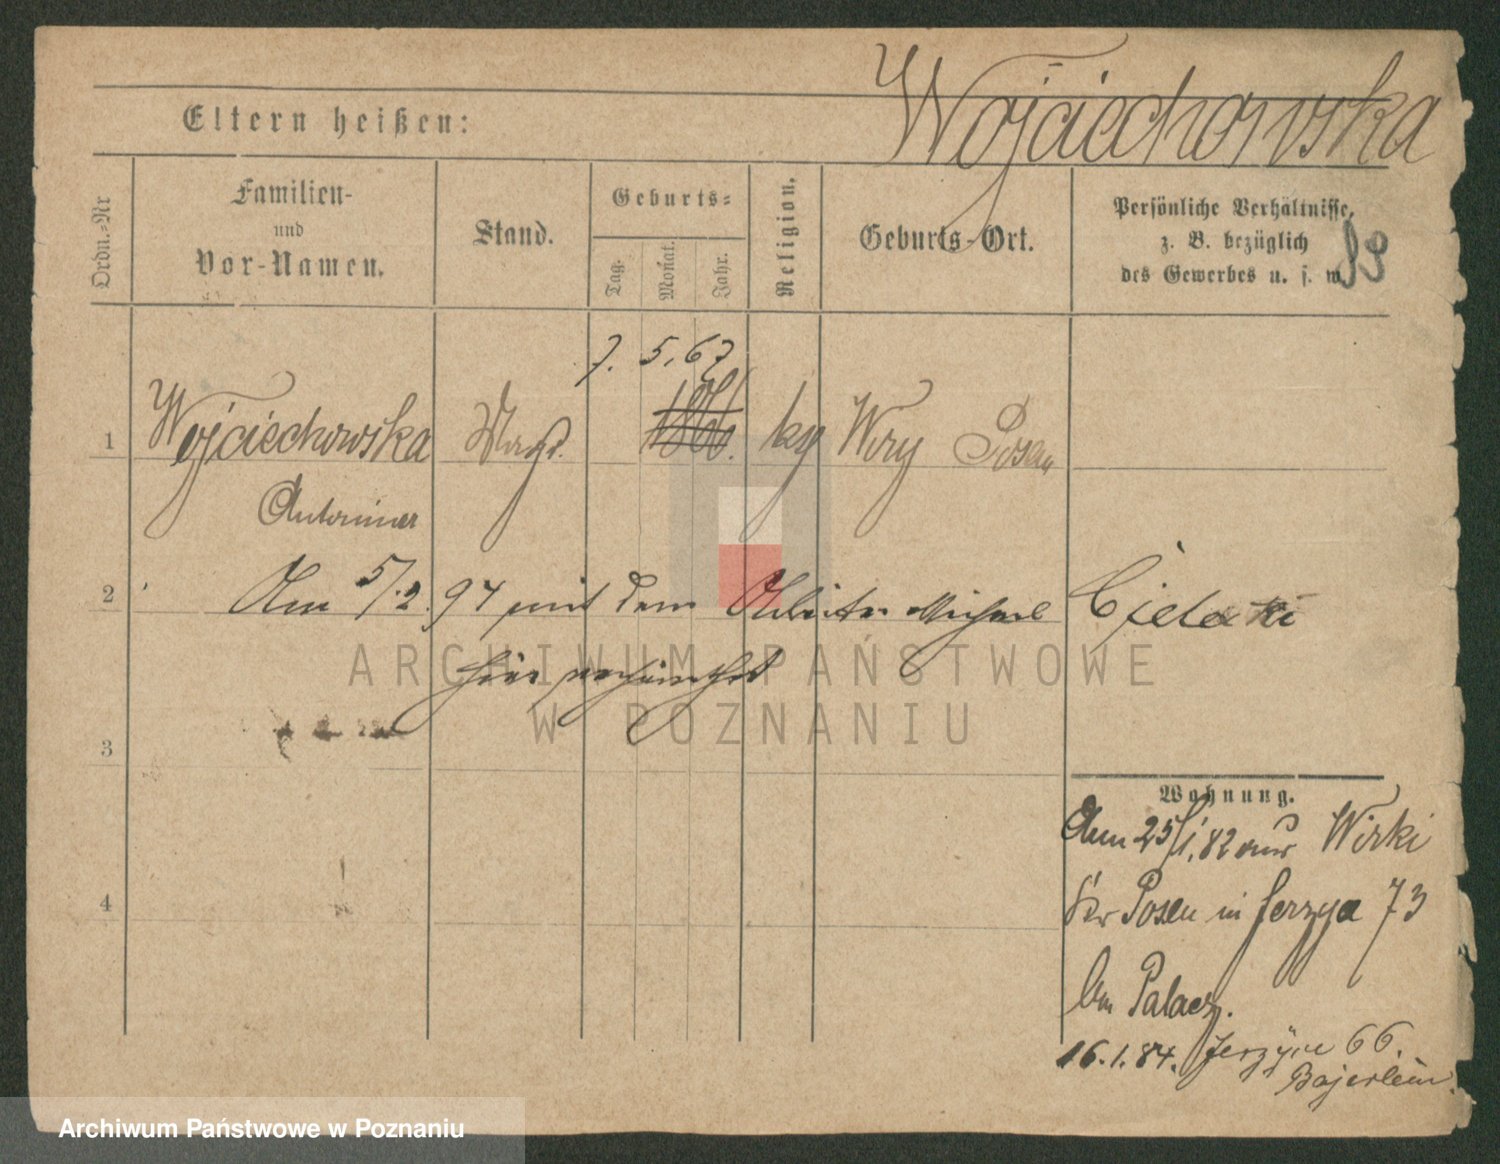 Wojciechowska
Eltern heißen:
Ordn.-Nr
Familien-
und
Vor-Namen.
Stand.
Geburts-
Tag.
Monat.
Jahr.
Religion.
Geburts-Ort.
Persönliche Verhältnisse,
z. B. bezüglich
des Gewerbes u. s. w.
7. 5. 67
1 Wojciechowska Magd. 1866. kg Wiry Posen
Antonina
2 Am 5/2. 94 mit dem Arbeiter Michael
hier verheirathet
3
4
Wohnung.
Am 25/1. 82 aus Wirki
Kr Posen in Jerzyce 73
bei Palacz.
16.1.84. Jerzyce 66.
Bajerlein.
ARCHIWUM PAŃSTWOWE
W POZNANIU
Archiwum Państwowe w Poznaniu